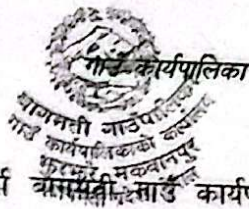 गाउँ कार्यपालिका
बागमती गाउँपालिका
गाउँ कार्यपालिकाको कार्यालय
मकवानपुर
बागमती गाउँ कार्यप